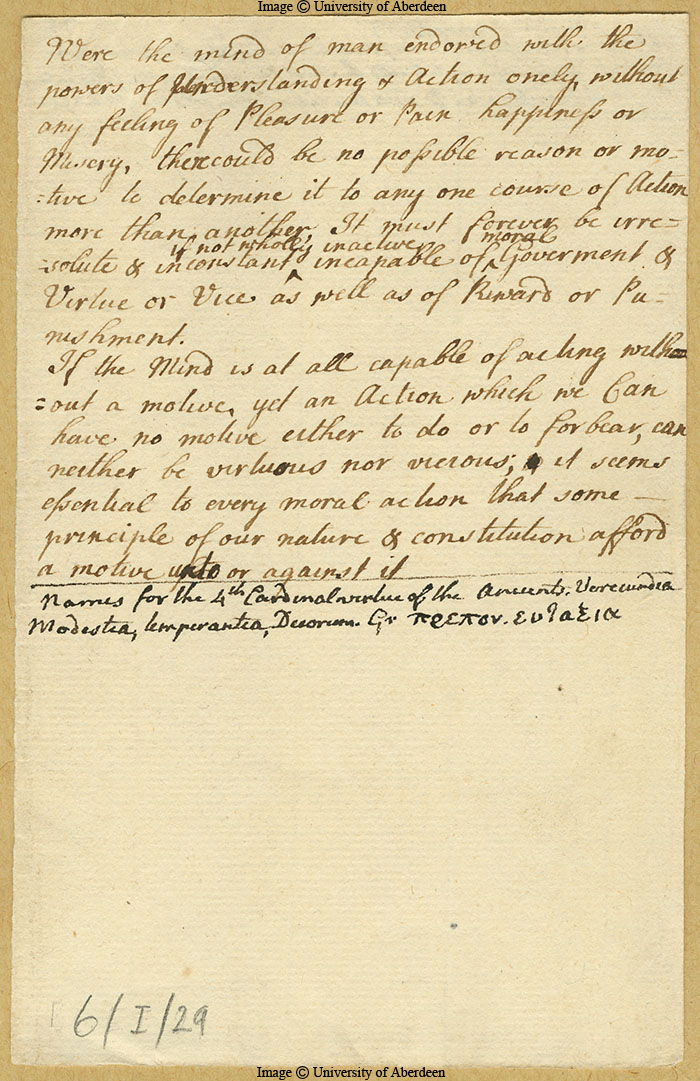 Image © University of Aberdeen
Were the mind of man endowed with the
powers of Understanding & Action onely, without
any feeling of Pleasure or Pain happiness or
Misery, there could be no possible reason or mo-
-tive to determine it to any one course of Action
more than another, It must forever be irre-
if not wholly inactive moral
-solute & inconstant ^ incapable of ^ Goverment &
Virtue or Vice as well as of Reward or Pu-
nishment.
If the Mind is at all capable of acting with
=out a motive, yet an Action which we Can
have no motive either to do or to forbear, can
neither be virtuous nor vicious; it seems
essential to every moral action that some
principle of our nature & constitution afford
a motive unto or against it
Names for the 4th Cardinal virtue of the Ancients. Verecundia
Modestia, temperantia, Decorum. Gr πρεπον. ευταξια
6/I/29
Image © University of Aberdeen